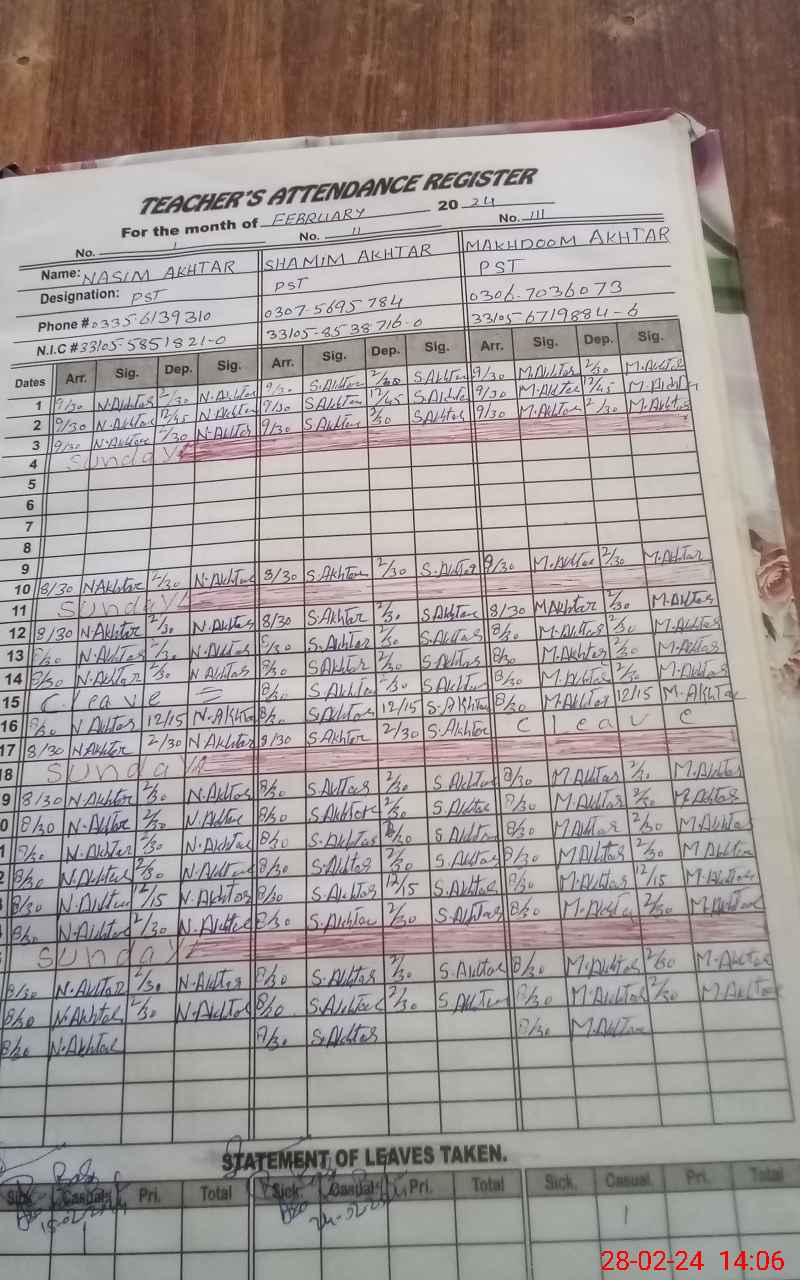 TEACHER'S ATTENDANCE REGISTER
For the month of FEBRUARY 20 24
No. I No. II No. III
Name: NASIM AKHTAR SHAMIM AKHTAR MAKHDOOM AKHTAR
Designation: PST PST PST
Phone # 0335-6139310 0307-5695784 0306-7036073
N.I.C # 33105-5851821-0 33105-8538716-0 33105-6719884-6
Dates Arr. Sig. Dep. Sig. Arr. Sig. Dep. Sig. Arr. Sig. Dep. Sig.
1 9/30 N.Akhtar 2/30 N.Akhtar 9/30 S.Akhtar S.Akhtar 9/30 M.Akhtar 2/30 M.Akhtar
2 9/30 N.Akhtar 12/45 N.Akhtar 9/30 S.Akhtar 12/45 S.Akhtar 9/30 M.Akhtar 12/45 M.Akhtar
3 9/30 N.Akhtar 2/30 N.Akhtar 9/30 S.Akhtar 2/30 S.Akhtar 9/30 M.Akhtar 2/30 M.Akhtar
4 Sunday
5
6
7
8
9
10 8/30 N.Akhtar 2/30 N.Akhtar 8/30 S.Akhtar 2/30 S.Akhtar M.Akhtar 2/30 M.Akhtar
11 Sunday
12 8/30 N.Akhtar 2/30 N.Akhtar 8/30 S.Akhtar 2/30 S.Akhtar 8/30 M.Akhtar 2/30 M.Akhtar
13 8/30 N.Akhtar 2/30 N.Akhtar 8/30 S.Akhtar 2/30 S.Akhtar 8/30 M.Akhtar 2/30 M.Akhtar
14 8/30 N.Akhtar 2/30 N.Akhtar 8/30 S.Akhtar 2/30 S.Akhtar 8/30 M.Akhtar 2/30 M.Akhtar
15 C.leave = 8/30 S.Akhtar 2/30 S.Akhtar 8/30 M.Akhtar 2/30 M.Akhtar
16 8/30 N.Akhtar 12/15 N.Akhtar 8/30 S.Akhtar 12/15 S.Akhtar 8/30 M.Akhtar 12/15 M.Akhtar
17 8/30 N.Akhtar 2/30 N.Akhtar 8/30 S.Akhtar 2/30 S.Akhtar C Leave
18 Sunday
9 8/30 N.Akhtar 2/30 N.Akhtar 8/30 S.Akhtar 2/30 S.Akhtar 8/30 M.Akhtar 2/30 M.Akhtar
0 8/30 N.Akhtar 2/30 N.Akhtar 8/30 S.Akhtar 2/30 S.Akhtar 8/30 M.Akhtar 2/30 M.Akhtar
1 8/30 N.Akhtar 2/30 N.Akhtar 8/30 S.Akhtar 2/30 S.Akhtar 8/30 M.Akhtar 2/30 M.Akhtar
2 8/30 N.Akhtar 2/30 N.Akhtar 8/30 S.Akhtar 2/30 S.Akhtar 8/30 M.Akhtar 2/30 M.Akhtar
8/30 N.Akhtar 12/15 N.Akhtar 8/30 S.Akhtar 12/15 S.Akhtar 8/30 M.Akhtar 12/15 M.Akhtar
8/30 N.Akhtar 2/30 N.Akhtar 8/30 S.Akhtar 2/30 S.Akhtar 8/30 M.Akhtar 2/30 M.Akhtar
Sunday
8/30 N.Akhtar 2/30 N.Akhtar 8/30 S.Akhtar 2/30 S.Akhtar 8/30 M.Akhtar 2/30 M.Akhtar
8/30 N.Akhtar 2/30 N.Akhtar 8/30 S.Akhtar 2/30 S.Akhtar 8/30 M.Akhtar 2/30 M.Akhtar
8/30 N.Akhtar 8/30 S.Akhtar 8/30 M.Akhtar
STATEMENT OF LEAVES TAKEN.
Sick Casual Pri. Total Sick. Casual Pri. Total Sick. Casual. Pri. Total
1 1
28-02-24 14:06